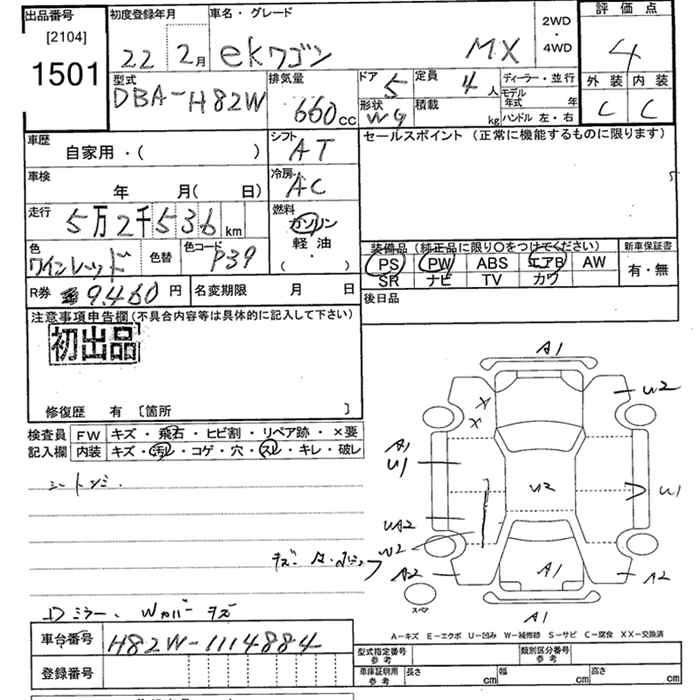 出品番号
[2104]
1501
初度登録年月
22 2月
車名・グレード
ekワゴン MX
2WD
・
4WD
評価点
4
外装 内装
C C
型式
DBA-H82W
排気量
660cc
ドア 5
定員 4人
形状 WG
積載 kg
ディーラー・並行
モデル年式 年
ハンドル 左・右
車歴
自家用・( )
シフト
AT
セールスポイント (正常に機能するものに限ります)
車検
年 月( 日)
冷房
AC
走行
5万2千536km
燃料
ガソリン
軽油
( ・ )
色
ワインレッド
色替
色コード
P39
装備品 (純正品に限り○をつけてください)
PS PW ABS エアB AW
SR ナビ TV カワ
新車保証書
有・無
R券 9,460円
名変期限 月 日
後日品
注意事項申告欄(不具合内容等は具体的に記入して下さい)
初出品
修復歴 有 [箇所 ]
検査員
記入欄
FW キズ・飛石・ヒビ割・リペア跡・×要
内装 キズ・汚レ・コゲ・穴・スレ・キレ・破レ
A1
U2
X
X
A1
U1
U2
U1
UA2
W2
A2
A1
A2
A1
スペア
Dミラー、Wカバーキズ
A-キズ E-エクボ U-凹み W-補修跡 S-サビ C-腐食 XX-交換済
車台番号
H82W-1114884
登録番号
型式指定番号
参考
類別区分番号
参考
車庫証明用
参考
長さ cm
幅 cm
高さ cm